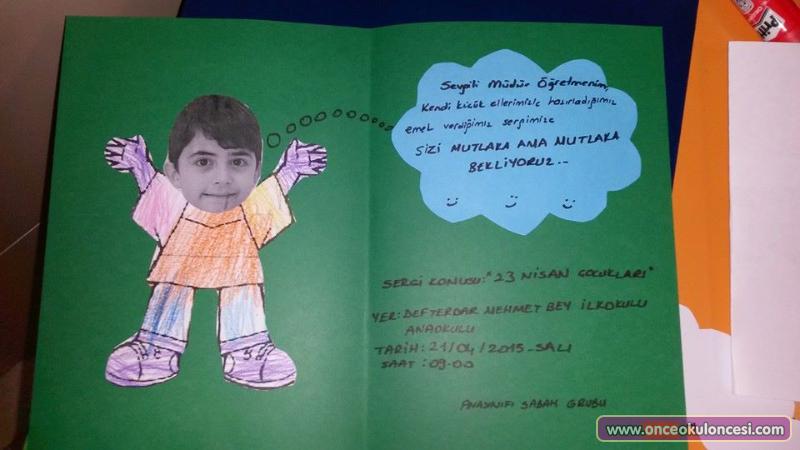 Sevgili Müdür Öğretmenim,
Kendi küçük ellerimizle hazırladığımız
emek verdiğimiz sergimize
SİZİ MUTLAKA AMA MUTLAKA
BEKLİYORUZ...
SERGİ KONUSU: "23 NİSAN ÇOCUKLARI"
YER: DEFTERDAR MEHMET BEY İLKOKULU
ANAOKULU
TARİH: 21/04/2015-SALI
SAAT: 09.00
ANASINIFI SABAH GRUBU
Prit
www.onceokuloncesi.com